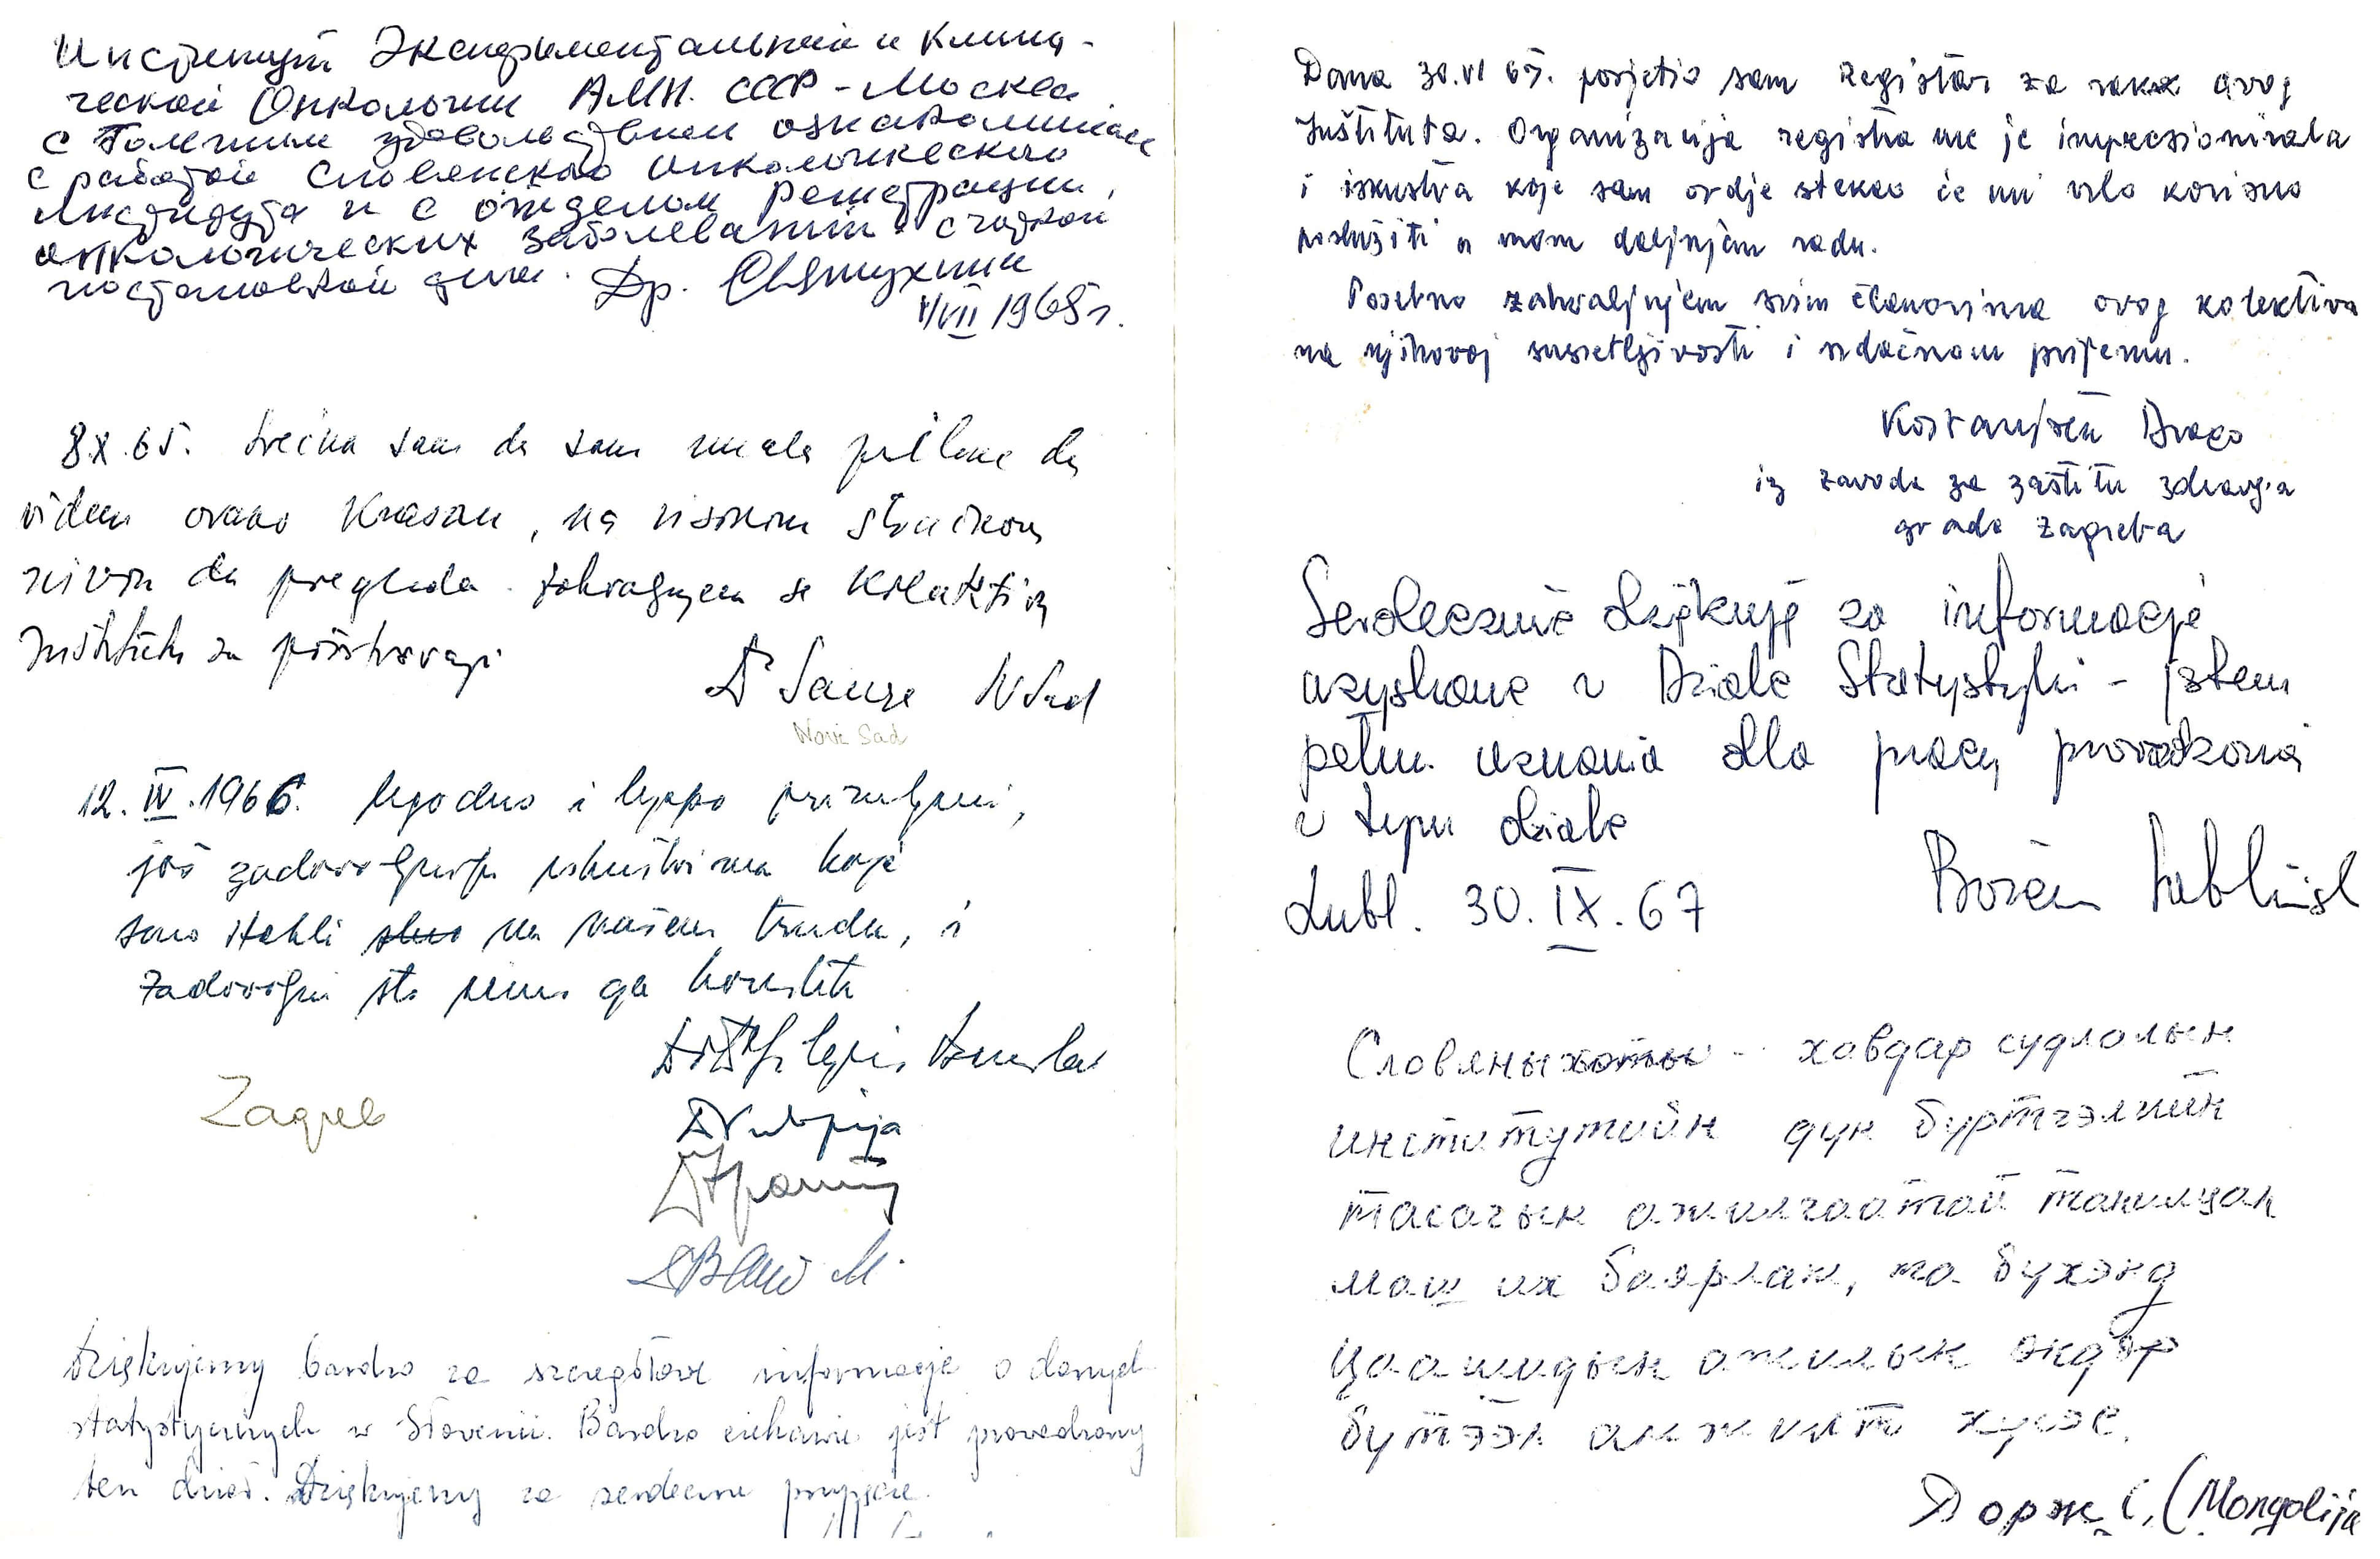 Институт Экспериментальной и Клини-
ческой Онкологии АМН. СССР - Москва
с большим удовольствием ознакомилась
с работой Словенского онкологического
Института и с отделом регистрации
онкологических заболеваний с чёткой
постановкой дела. Др.
VII 1965г.
8.X.65. Srećna sam da sam imala prilike da
vidim ovako krasan, na visokom stručnom
nivou da pregleda. Zahvaljujem se kolektivu
Instituta na
Dr N Sad
Novi Sad
12.IV.1966. Ugodno i lijepo
još iskustvima koje
smo stekli smo na vašem trudu, i
zadovoljni što ga koristiti
Zagreb
Dr
Dr
Dr
Dr M.
Dziękujemy bardzo za szczegółowe informacje o danych
statystycznych w Słowenii. Bardzo ciekawie jest prowadzony
ten dział. Dziękujemy za serdeczne przyjęcie.
Dana 30.VI 67. posjetio sam registar za raka ovog
Instituta. Organizacija registra me je impresionirala
i iskustva koje sam ovdje stekao će mi vrlo korisno
poslužiti u mom daljnjem radu.
Posebno zahvaljujem svim članovima ovog kolektiva
na njihovoj susretljivosti i srdačnom prijemu.
Kostanjšek Drago
iz zavoda za zaštitu zdravlja
grada Zagreba
Serdecznie dziękuję za informacje
uzyskane w Dziale Statystyki - jestem
pełna uznania dla pracy prowadzonej
w tym dziale
Lubl. 30.IX.67
Словяны хотын - хавдар судлалын
институтийн дүн бүртгэлийн
тасагын ажиллагаатай танилцан
маш их баярлаж, та бүхэнд
цаашидын ажилын өндөр
бүтээл амжилт хүсье.
Дорж С. (Mongolija